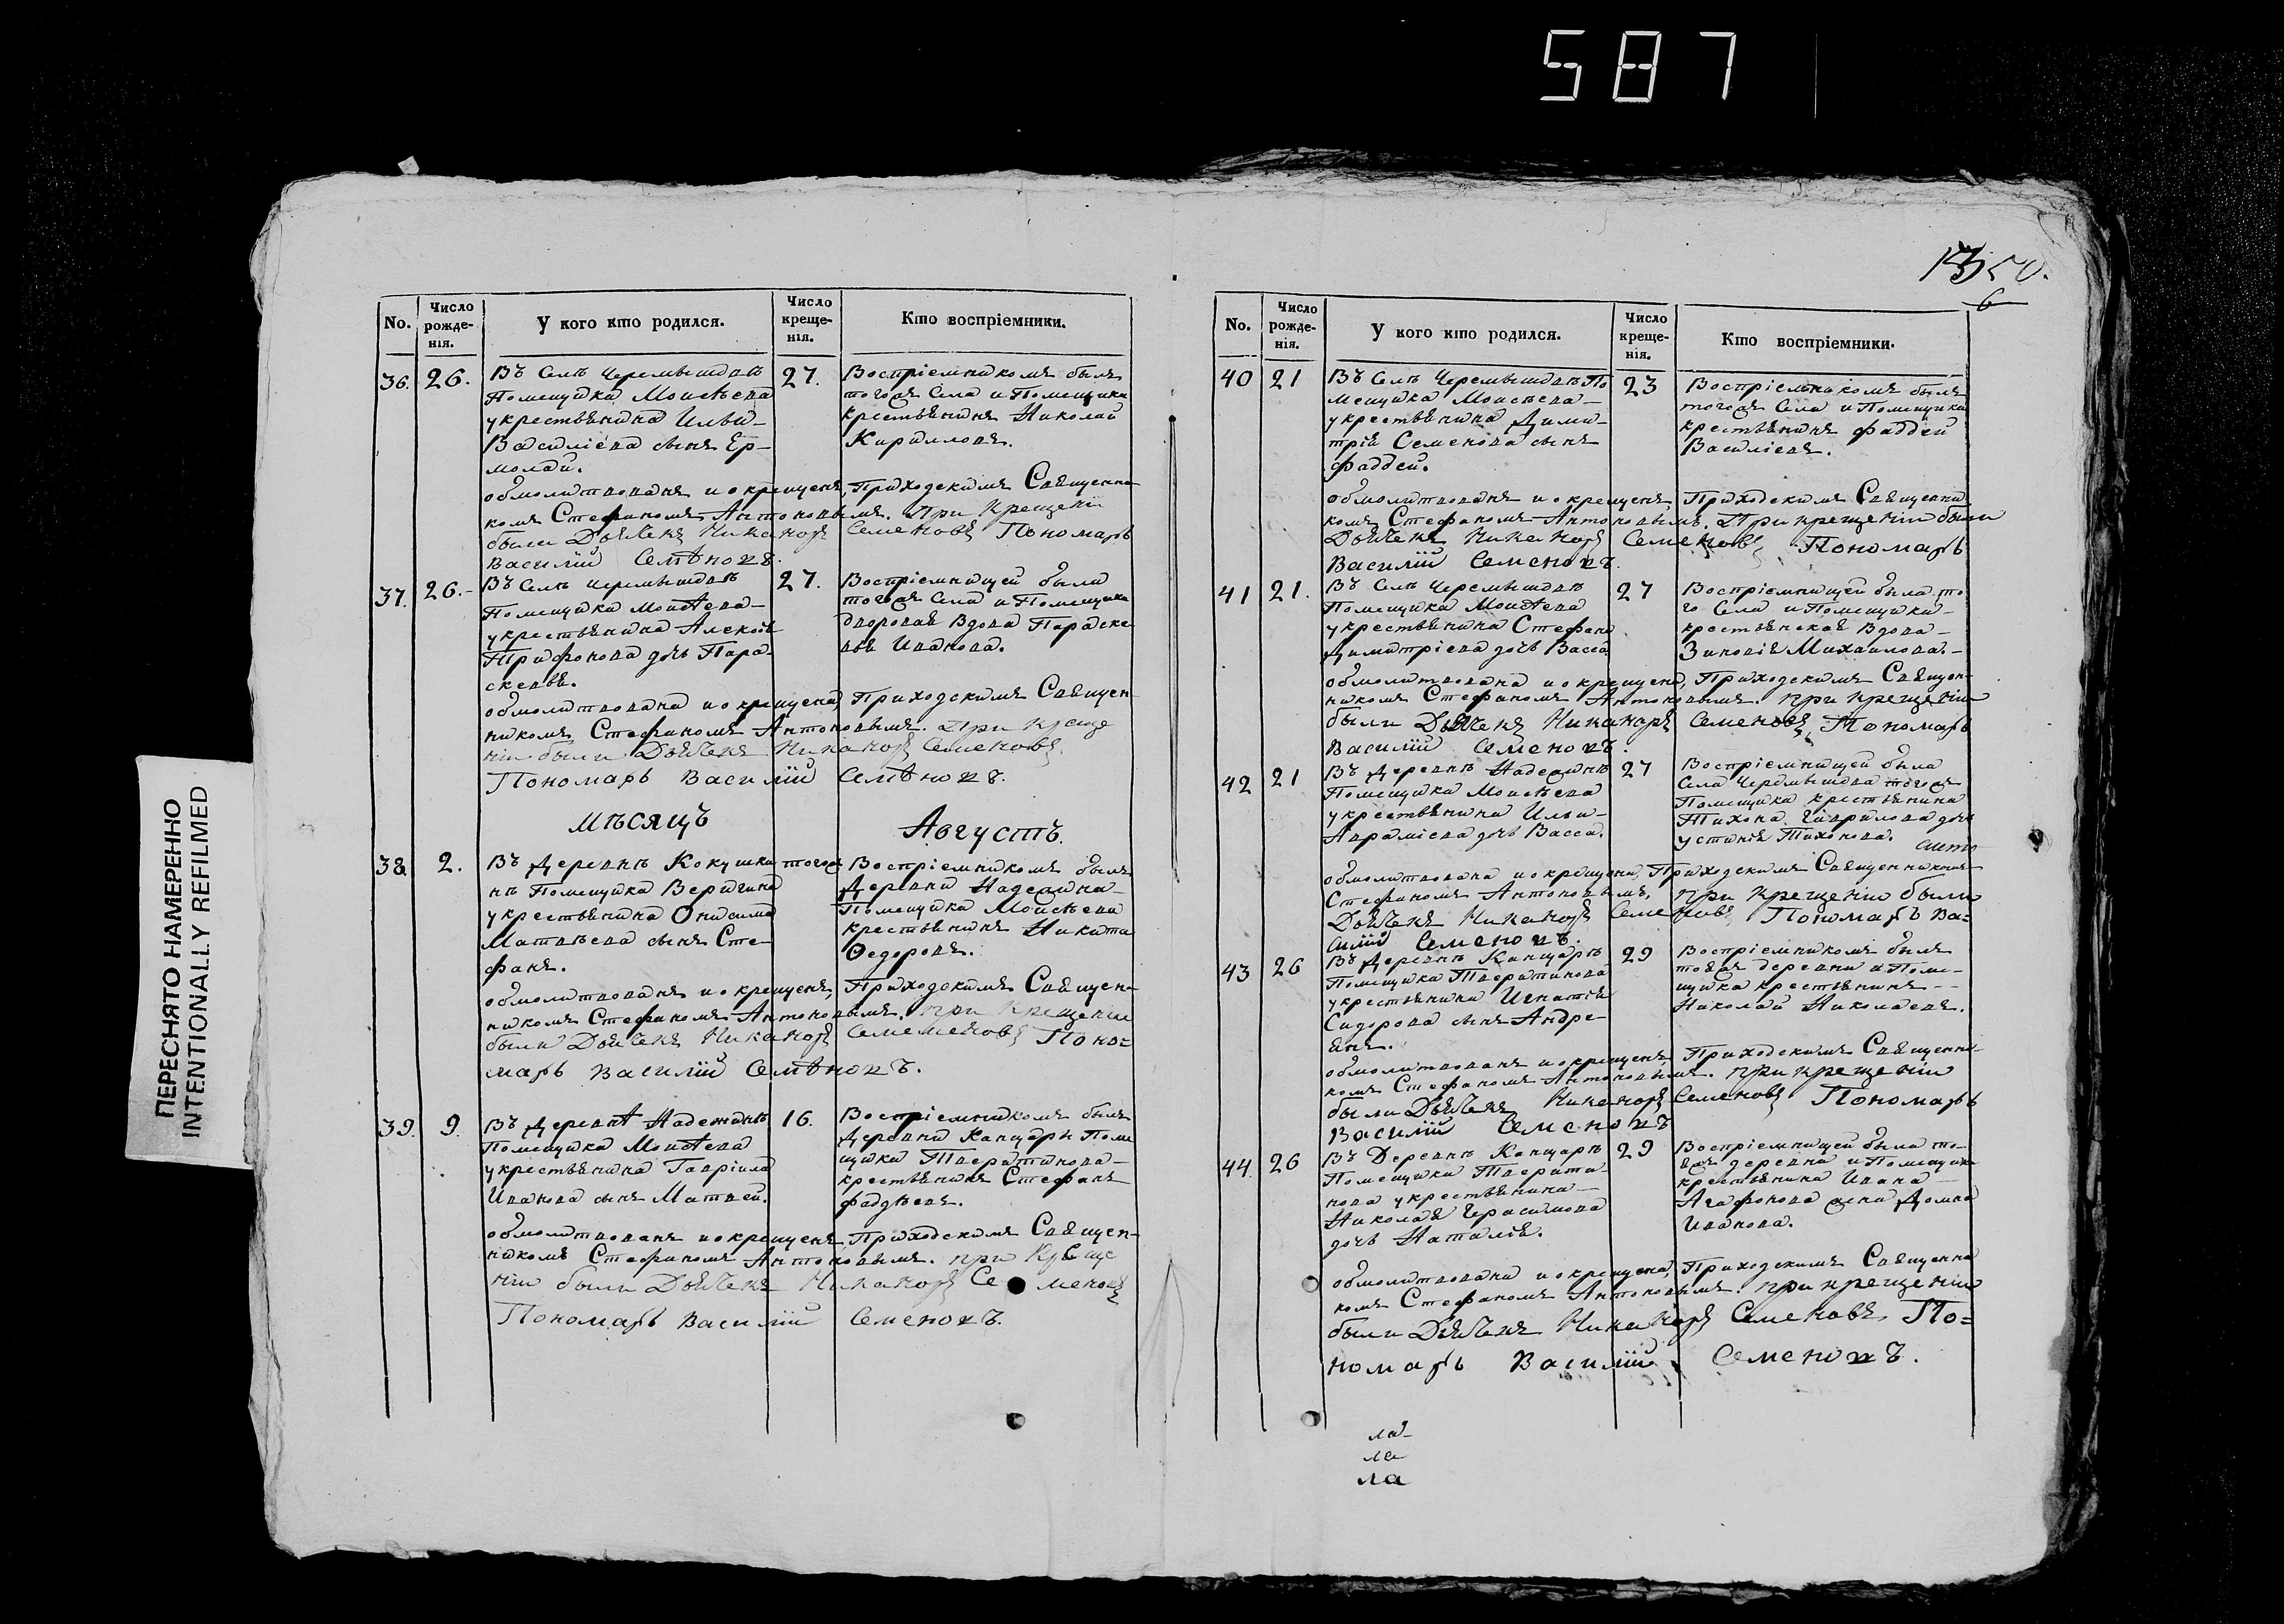 587
ПЕРЕСНЯТО НАМЕРЕННО
INTENTIONALLY REFILMED
No.
Число рожде-нія.
У кого кто родился.
Число креще-нія.
Кто воспріемники.
36. 26.
Въ Селѣ Черемышдвѣ
Помещика Моисѣева
укрестьянина Ильи-
Василіева сынъ Ер-
молай.
27.
Воспріемникомъ былъ
тогожъ Села и Помещика
крестьянинъ Николай
Кирилловъ.
обмолитвованъ и окрещенъ, Приходскимъ Священни-
комъ Стефаномъ Антоновымъ. При Крещеніи
были Дьячекъ Никаноръ Семеновъ Пономарь
Василій Семѣновъ.
37. 26.-
Въ Селѣ Черемышдвѣ
Помещика Моисѣева-
укрестьянина Алексѣя
Трифонова дочь Пара-
скевья.
27.
Воспріемницей была
тогожъ Села и Помещика
дворовая Вдова Параске
вья Иванова.
обмолитвована и окрещена, Приходскимъ Священ-
никомъ Стефаномъ Антоновымъ. При Креще
ніи были Дьячекъ Никаноръ Семеновъ
Пономарь Василій Семѣновъ.
Мѣсяцъ Августъ.
38. 2.
Въ Деревнѣ Кокушки
нѣ Помещика Веригина
укрестьянина Онисима
Матвѣева сынъ Сте-
фанъ.
тогожъ
Воспріемникомъ былъ
Деревни Надеждина-
Помещика Моисѣева
крестьянинъ Никита
Ѳедоровъ.
обмолитвованъ и окрещенъ, Приходскимъ Священ-
никомъ Стефаномъ Антоновымъ. при Крещеніи
были Дьячекъ Никаноръ Семеменовъ Поно=
марь Василій Семѣновъ.
39. 9.
Въ Деревнѣ Надеждинѣ
Помещика Моисѣева
укрестьянина Гавріила
Иванова сынъ Матвей.
16.
Воспріемникомъ былъ
Деревни Канцарь Поме
щика Тверитинова-
крестьянинъ Стефанъ
Фадѣевъ.
обмолитвованъ и окрещенъ, Приходскимъ Священ-
никомъ Стефаномъ Антоновымъ. при Креще
ніи были Дьячекъ Никаноръ Семеновъ
Пономарь Василій Семеновъ.
6
No.
Число рожде-нія.
У кого кто родился.
Число креще-нія.
Кто воспріемники.
40 21
Въ Селѣ Черемышдвѣ По
мещика Моисѣева-
укрестьянина Дими-
трія Семенова сынъ
Фаддей.
23
Воспріемникомъ былъ
тогожъ Села и Помещика
крестьянинъ Фаддей
Василіевъ.
обмолитвованъ и окрещенъ, Приходскимъ Священни
комъ Стефаномъ Антоновымъ. При крещеніи были
Дьячекъ Никаноръ Семеновъ, Пономарь
Василій Семеновъ.
41 21.
Въ Селѣ Черемышдвѣ
Помещика Моисѣева
укрестьянина Стефана
Димитріева дочь Васса
27
Воспріемницей была то
го Села и Помещика-
крестьянская Вдова-
Зиновія Михаилова.-
обмолитвована и окрещена, Приходскимъ Священ-
никомъ Стефаномъ Антоновымъ. при крещеніи
были Дьячекъ Никаноръ Семеновъ, Пономарь
Василій Семеновъ.
42 21
Въ Деревнѣ Надеждинѣ
Помещика Моисѣева
укрестьянина Ильи-
Аврамiева дочь Васса.
27
Воспріемницей была
Села Черемышдва тогожъ
Помещика крестьянина
Тихона Гаврилова дочь
Устинія Тихонова.
обмолитвована и окрещена, Приходскимъ Священникомъ
Стефаномъ Антоновымъ, при крещеніи были
Дьячекъ Никаноръ Семеновъ Пономарь Ва=
силій Семеновъ.
43 26
Въ Деревнѣ Канцарѣ
Помещика Тверитинова
укрестьянина Игнатія
Сидорова сынъ Андре-
янъ.
29
Воспріемникомъ былъ
тояжъ деревни и Поме-
щика крестьянинъ--
Николай Николаевъ.
обмолитвованъ и окрещенъ Приходскимъ Священни-
комъ Стефаномъ Антоновымъ. при крещеніи
были Дьячекъ Никаноръ Семеновъ Пономарь
Василій Семеновъ
44. 26
Въ Деревнѣ Канцарѣ
Помещика Тверити
нова укрестьянина-
Николая Герасимова
дочь Наталія.
29
Воспріемницей была то-
яжъ деревни и Помещика
крестьянина Ивана-
Агафонова жена Домна
Иванова.
обмолитвована и окрещена, Приходскимъ Священни
комъ Стефаномъ Антоновымъ. при крещеніи
были Дьячекъ Никаноръ Семеновъ, По=
номарь Василій Семеновъ.
ла-
ла
ла